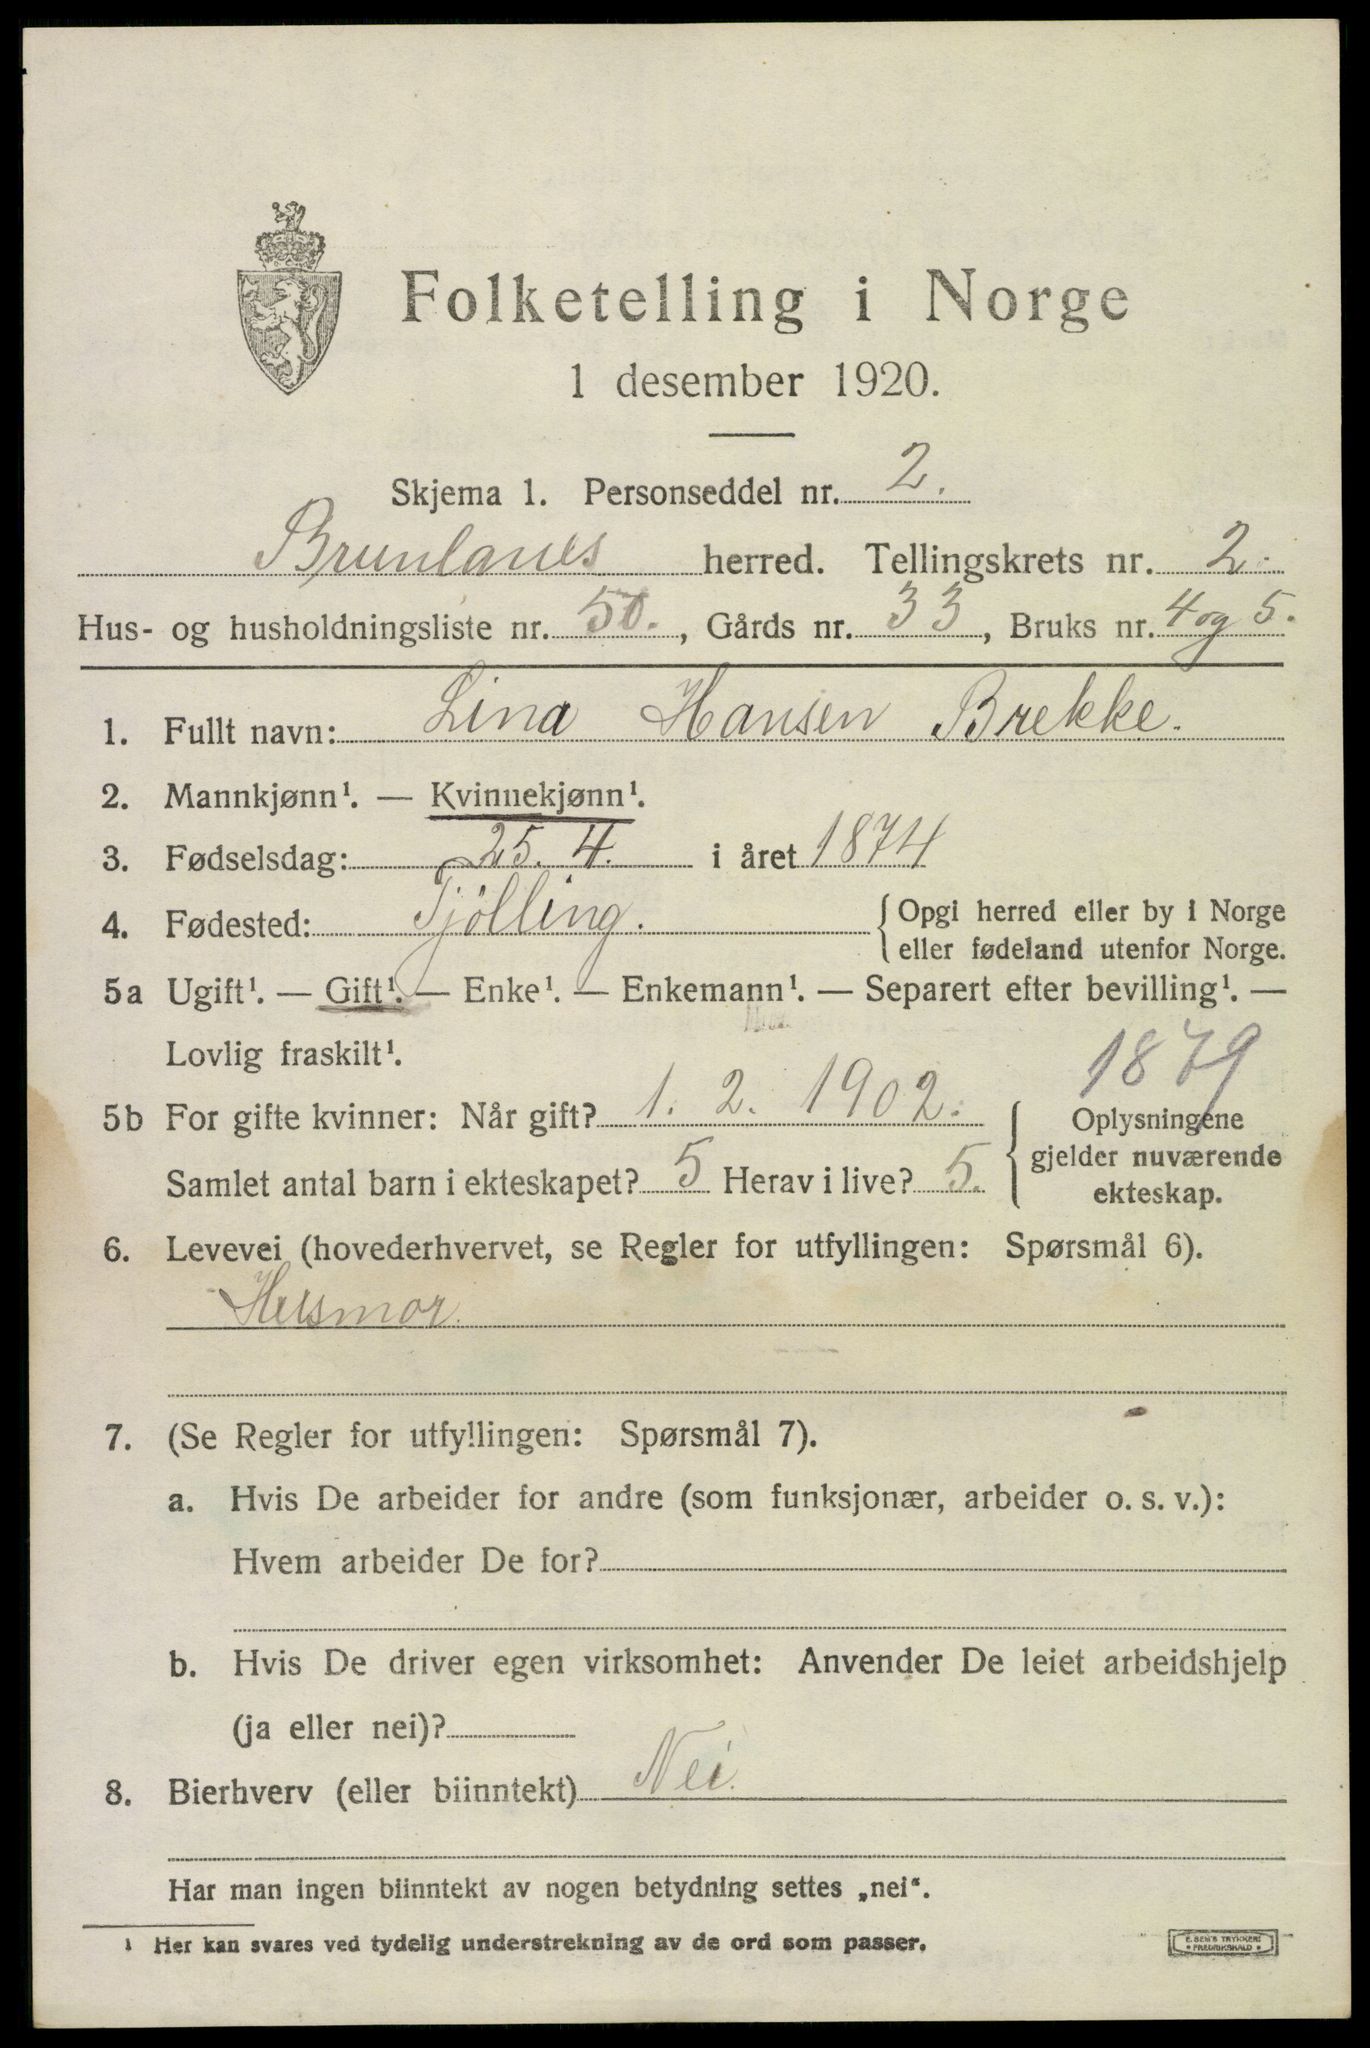 Folketelling i Norge
1 desember 1920.
Skjema 1. Personseddel nr. 2.
Brunlanes herred. Tellingskrets nr. 2.
Hus- og husholdningsliste nr. 50., Gårds nr. 33, Bruks nr. 4 og 5.
1. Fullt navn: Lina Hansen Brekke.
2. Mannkjønn¹. — Kvinnekjønn¹.
3. Fødselsdag: 25. 4. i året 1874
4. Fødested: Tjölling. { Opgi herred eller by i Norge
eller fødeland utenfor Norge.
5a Ugift¹. — Gift¹. — Enke¹. — Enkemann¹. — Separert efter bevilling¹. —
Lovlig fraskilt¹.
1879
5b For gifte kvinner: Når gift? 1. 2. 1902. { Oplysningene
gjelder nuværende
Samlet antal barn i ekteskapet? 5 Herav i live? 5. ekteskap.
6. Levevei (hovederhvervet, se Regler for utfyllingen: Spørsmål 6).
Husmor.
7. (Se Regler for utfyllingen: Spørsmål 7).
a. Hvis De arbeider for andre (som funksjonær, arbeider o. s. v.):
Hvem arbeider De for?
b. Hvis De driver egen virksomhet: Anvender De leiet arbeidshjelp
(ja eller nei)?
8. Bierhverv (eller biinntekt) Nei.
Har man ingen biinntekt av nogen betydning settes „nei“.
¹ Her kan svares ved tydelig understrekning av de ord som passer.
E. SEM'S TRYKKERI
FREDRIKSHALD